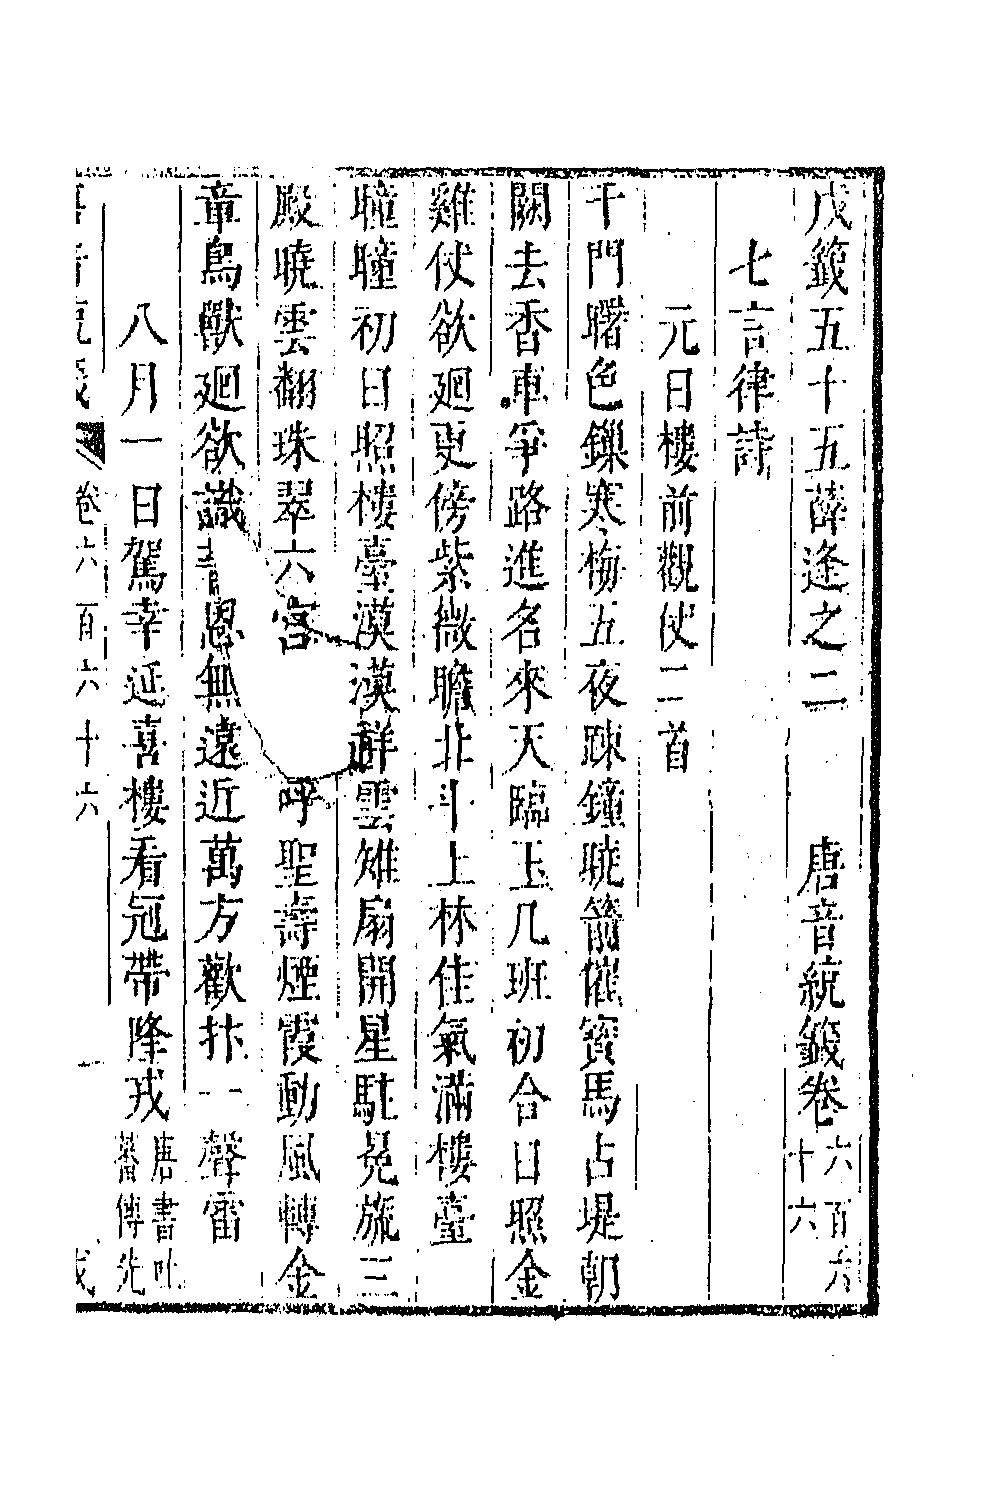 戊籤五十五薛逢之二　唐音統籤卷六百六十六
七言律詩
元日樓前觀仗二首
千門曙色鏁寒梅五夜踈鐘曉箭催寳馬占堤朝
闕去香車爭路進名來天臨玉几班初合日照金
雞仗欲廻更傍紫微瞻北斗上林佳氣滿樓臺
曈曈初日照樓臺漠漠祥雲雉扇開星駐冕旒三
殿曉雲翻珠翠六宮呼聖壽煙霞動風轉金
章鳥獸廻欲識恩無遠近萬方歡抃一聲雷
八月一日駕幸延喜樓看冠帶降戎唐書吐蕃傳先
卷六百六十六 一